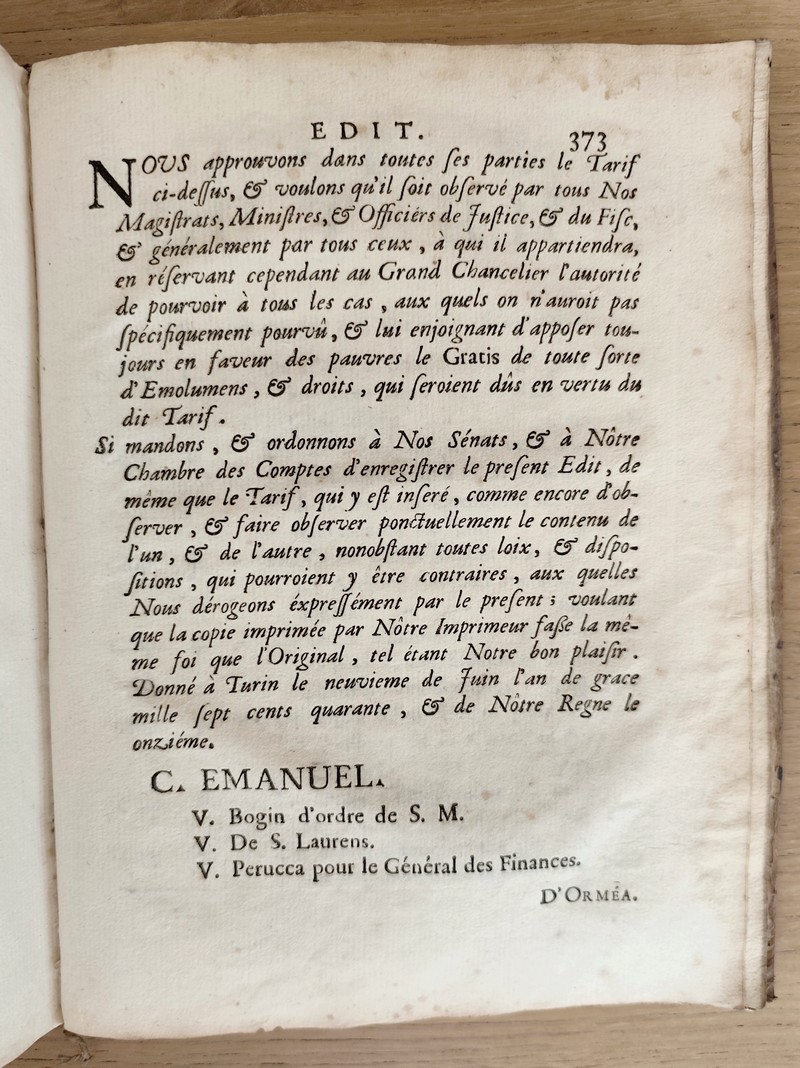 EDIT. 373
NOUS approuvons dans toutes ſes parties le Tarif
ci-deſſus, & voulons qu'il ſoit obſervé par tous Nos
Magiſtrats, Miniſtres, & Officiérs de Juſtice, & du Fiſc,
& généralement par tous ceux, à qui il appartiendra,
en réſervant cependant au Grand Chancelier l'autorité
de pourvoir à tous les cas, aux quels on n'auroit pas
ſpécifiquement pourvû, & lui enjoignant d'appoſer tou-
jours en faveur des pauvres le Gratis de toute ſorte
d'Emolumens, & droits, qui ſeroient dûs en vertu du
dit Tarif.
Si mandons, & ordonnons à Nos Sénats, & à Nôtre
Chambre des Comptes d'enregiſtrer le preſent Edit, de
même que le Tarif, qui y eſt inſeré, comme encore d'ob-
ſerver, & faire obſerver ponctuellement le contenu de
l'un, & de l'autre, nonobſtant toutes loix, & diſpo-
ſitions, qui pourroient y être contraires, aux quelles
Nous dérogeons éxpreſſément par le preſent; voulant
que la copie imprimée par Nôtre Imprimeur faße la mê-
me foi que l'Original, tel étant Notre bon plaiſir.
Donné à Turin le neuvieme de Juin l'an de grace
mille ſept cents quarante, & de Nôtre Regne le
onziéme.
C. EMANUEL.
V. Bogin d'ordre de S. M.
V. De S. Laurens.
V. Perucca pour le Général des Finances.
D'ORMÉA.